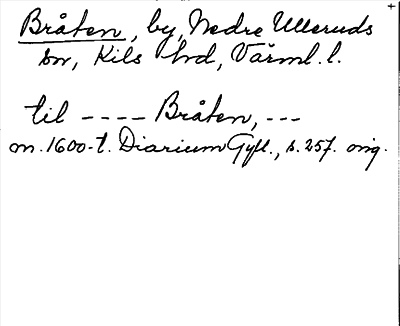 Bråten, by, Nedre Ulleruds
sn, Kils hd, Värml. l.
til ---- Bråten, ---
m. 1600-t. Diarium Gyll., s. 257. orig.